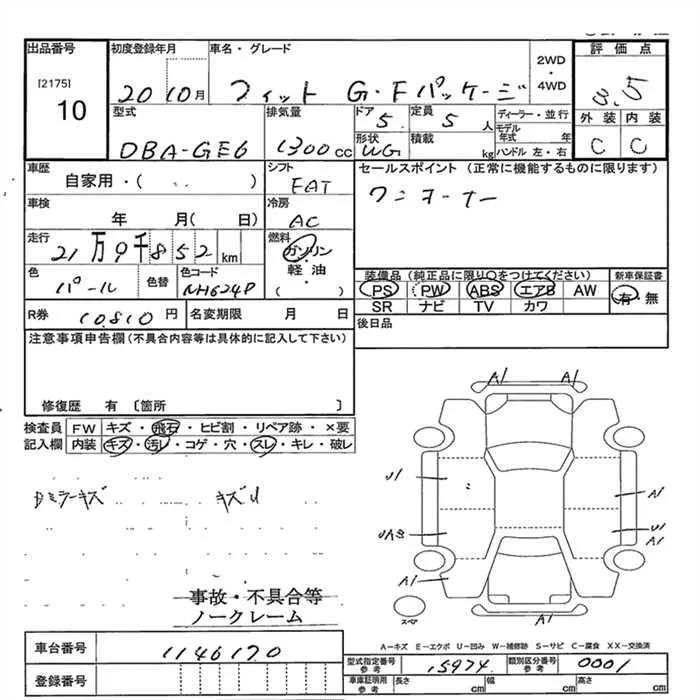 出品番号 初度登録年月 車名・グレード 2WD・4WD 評価点
[2175]
10
20 10月 フィット G・Fパッケージ 3.5
型式 排気量 ドア 定員 ディーラー・並行 外装 内装
DBA-GE6 1300cc 5 5人 モデル年式 年 C C
形状 積載 kg ハンドル 左・右
WG
車歴 シフト セールスポイント (正常に機能するものに限ります)
自家用・( ) FAT ワンオーナー
車検 冷房
年 月( 日) AC
走行 燃料
21万9千852km ガソリン・軽油 ( )
装備品 (純正品に限り○をつけてください) 新車保証書
色 色替 色コード PS PW ABS エアB AW 有・無
パール NH624P SR ナビ TV カワ
R券 10810円 名変期限 月 日 後日品
注意事項申告欄 (不具合内容等は具体的に記入して下さい)
修復歴 有 〔箇所 〕
検査員 FW キズ・飛石・ヒビ割・リペア跡・×要
記入欄 内装 キズ・汚レ・コゲ・穴・スレ・キレ・破レ
A1 A1
U1
A1
U1
A1
A1
A1
スペア
Dミラーキズ キズU
事故・不具合等
ノークレーム
A-キズ E-エクボ U-凹み W-補修跡 S-サビ C-腐食 XX-交換済
車台番号 1146170
登録番号
型式指定番号 参考 15974 類別区分番号 参考 0001
車庫証明用 参考 長さ cm 幅 cm 高さ cm